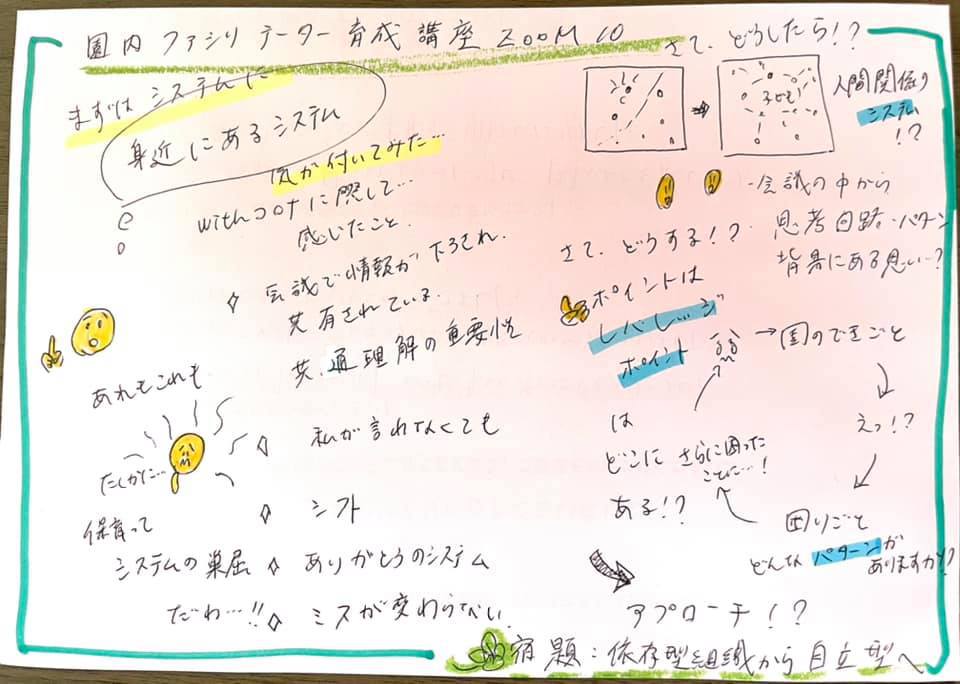 園内ファシリテーター育成講座 ZOOM 10
まずはシステムに
身近にあるシステム
気が付いてみた…
withコロナに際して…
感じたこと.
◇ 会議で情報が下ろされ.
共有されている.
共通理解の重要性
あれもこれも
たしかに…
◇ 私が言わなくても
保育って
◇ シフト
システムの巣屈
◇ ありがとうのシステム
だわ…!!
◇ ミスが変わらない.
さて、どうしたら!?
子ども!
人間関係の
システム
!?
・会議の中から
思考回路・パタン
背景にある思い…?
さて、どうする!?
ポイントは
レバレッジ
ポイント
は
どこに
ある!?
→園のできごと
えっ!?
困りごと
どんなパターンが
ありますか!?
さらに困った
ことに…!
アプローチ!?
宿題:依存型組織から自立型へ